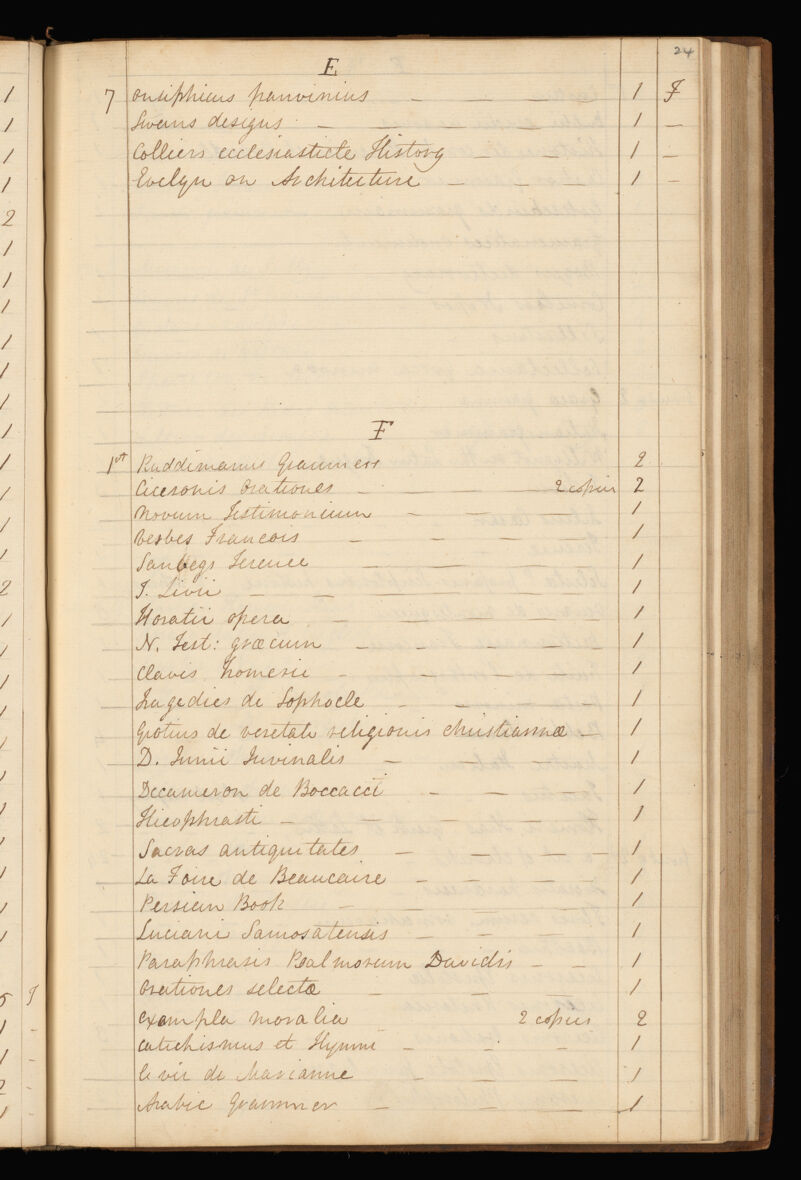 24
E
7 onuphicus panvinius — — — — 1 F
Swans designs — — — — 1 —
Colliers ecclesiasticle History — — — 1 —
Evelyn on Architecture — — — 1 —
F
1st Ruddimanns Grammers 2
Ciceronis orationes — — 2 copies 2
Novum Testimonium — — — 1
Verbes Francois — — — — 1
Sanbegs Terence — — — — 1
T. Livii — — — — 1
Horatii opera — — — — 1
N. Test: græcum — — — — 1
Clavis homerii — — — — 1
Tragedies de Sophocle — — — 1
Grotius de veretate religionis christiannæ — 1
D. Junii Juvinalis — — — 1
Decameron de Boccacci — — — 1
Theophrasti — — — — 1
Sacras antiquitates — — — — 1
La Foire de Beaucaire — — — 1
Persian Book — — — — 1
Luciani Samosatensis — — — 1
Paraphrasis Psalmorum Davidis — — 1
orationes selectæ — — — 1
exampla moralia 2 copies 2
catechismus et Hymni — — — 1
le vie de Marianne — — — 1
Arabic Grammer — — — 1
1
1
1
1
2
1
1
1
1
1
1
1
1
1
1
1
2
1
1
1
1
1
1
1
1
1
1
1
1
5 F
1 —
1 —
2 —
1 —